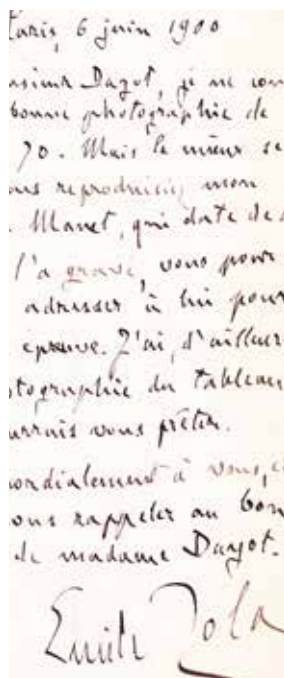 Paris, 6 juin 1900
Dayot, je ne con
bonne photographie de
70. Mais le mieux se
ous reproduisiez mon
Manet, qui date de
l'a gravé, vous pour
adresser à lui pour
épreuve. J'ai, d'ailleur
otographie du tableau
urrais vous prêter.
ordialement à vous, e
ous rappeler au bon
de madame Dayot.
Emile Zola